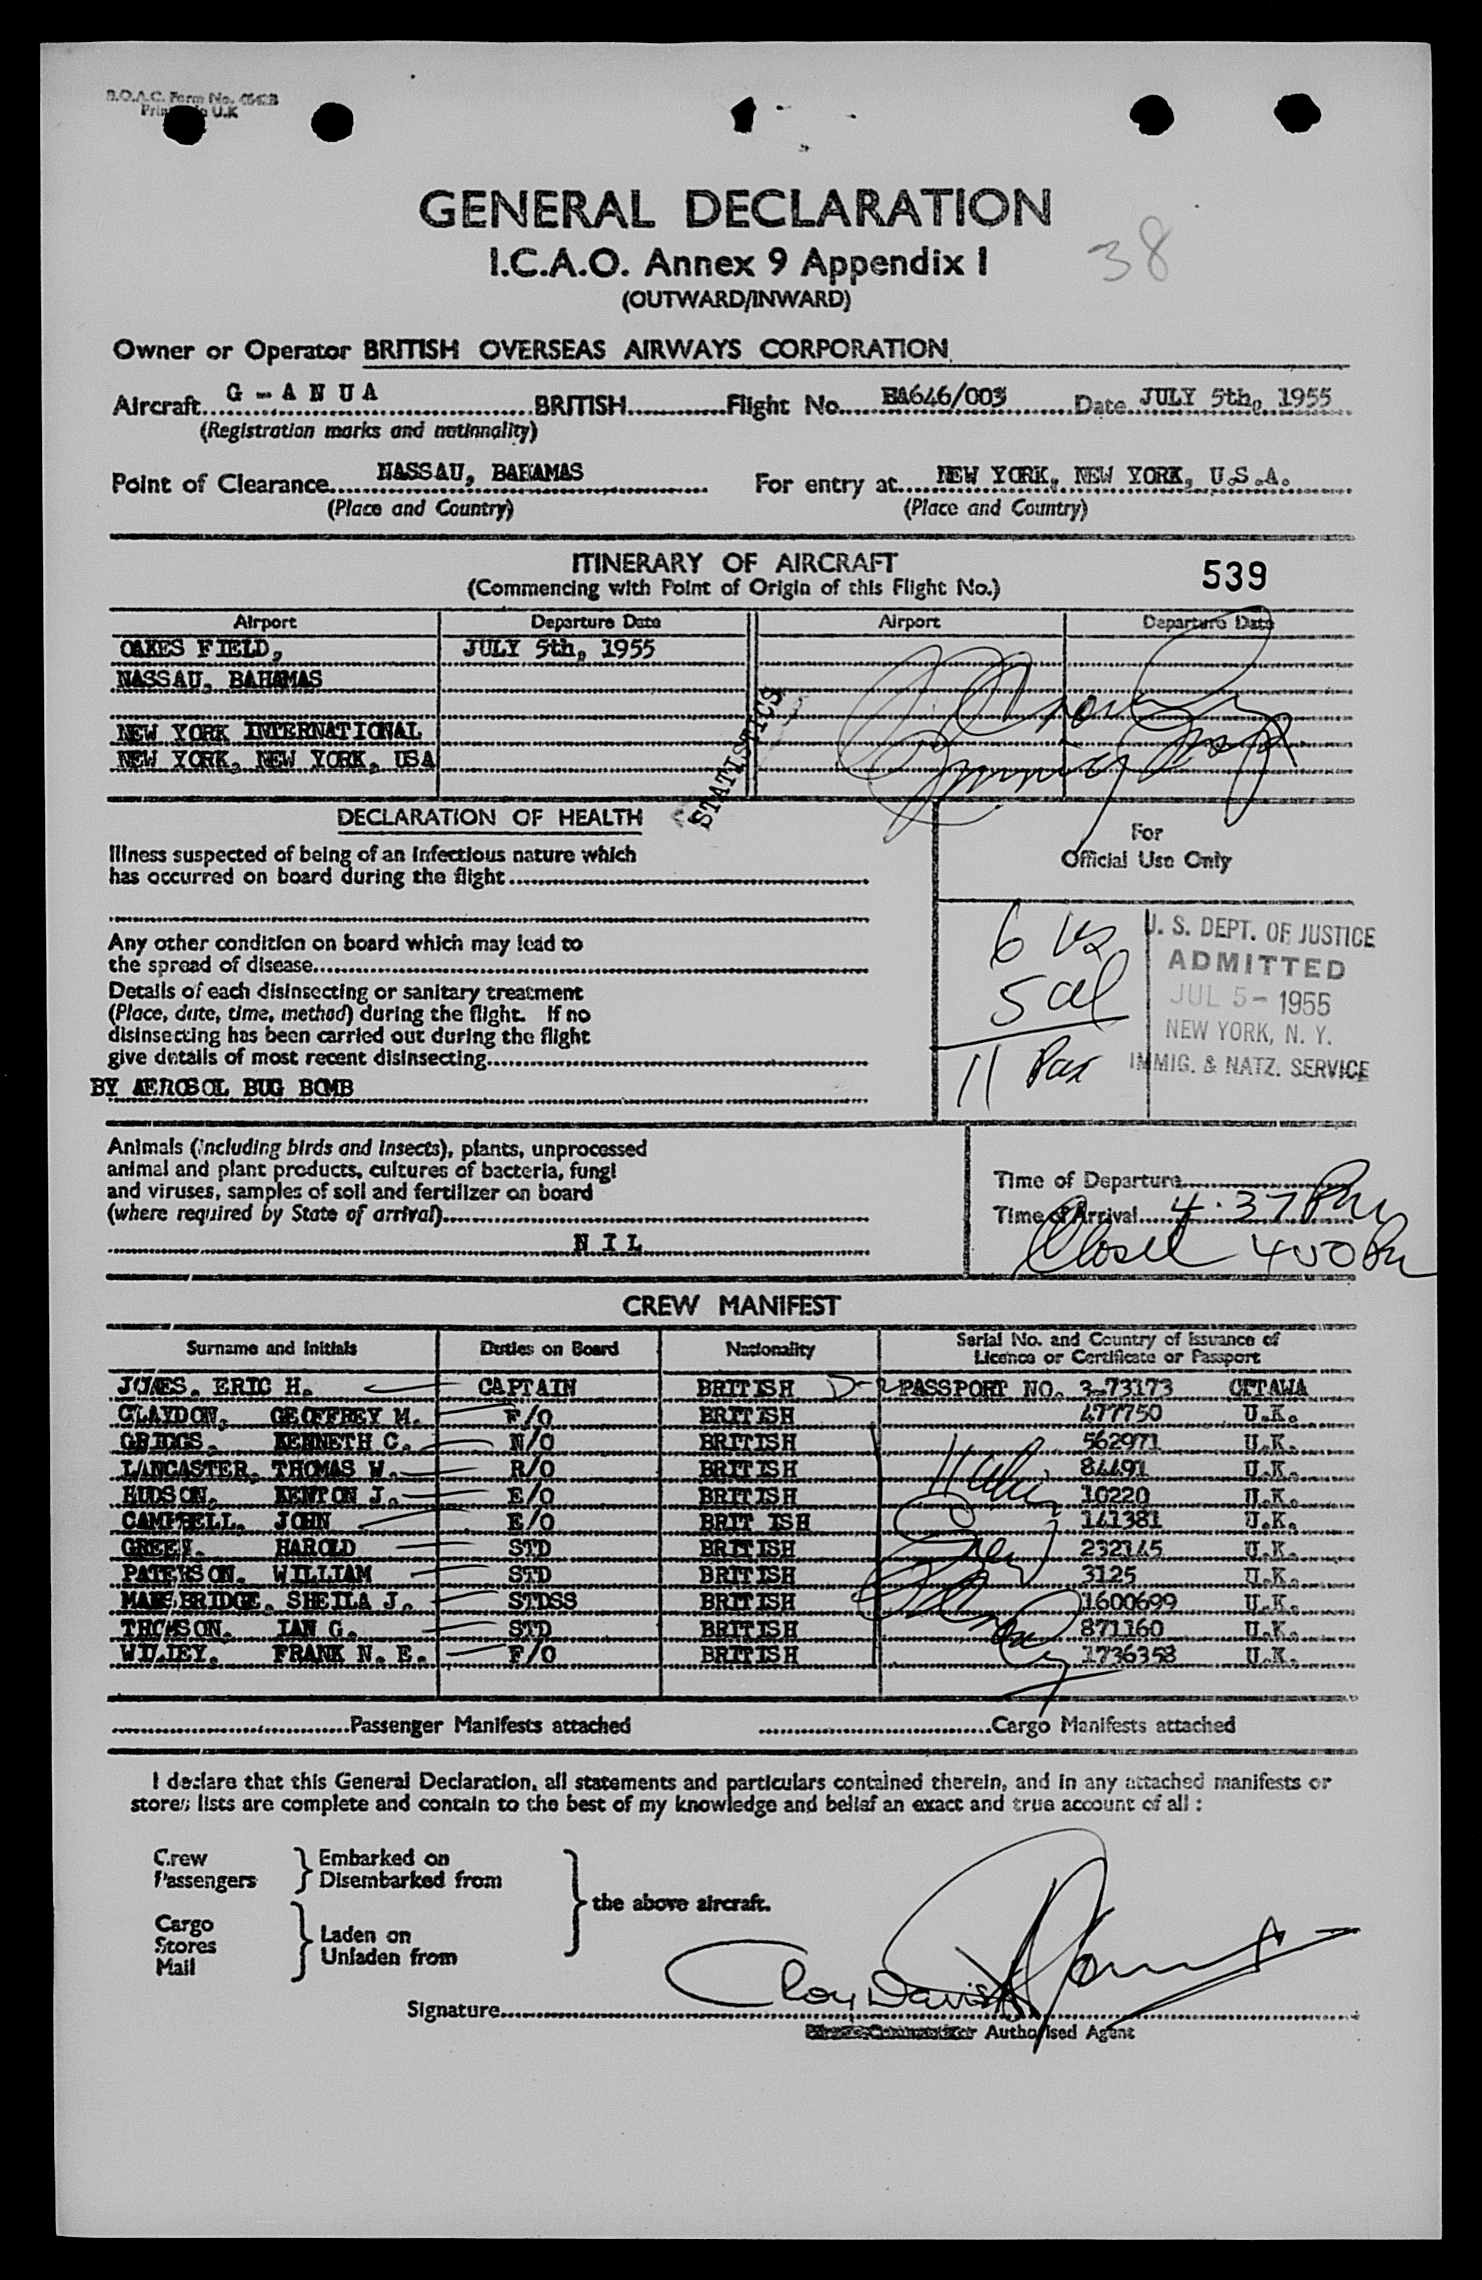 B.O.A.C. Form No.
U.K
GENERAL DECLARATION
I.C.A.O. Annex 9 Appendix I
38
(OUTWARD/INWARD)
Owner or Operator BRITISH OVERSEAS AIRWAYS CORPORATION
Aircraft G - A N U A BRITISH Flight No. BA646/003 Date JULY 5th, 1955
(Registration marks and nationality)
Point of Clearance NASSAU, BAHAMAS For entry at NEW YORK, NEW YORK, U.S.A.
(Place and Country) (Place and Country)
ITINERARY OF AIRCRAFT
(Commencing with Point of Origin of this Flight No.)
539
Airport Departure Date Airport Departure Date
OAKES FIELD, JULY 5th, 1955
NASSAU, BAHAMAS
NEW YORK INTERNATIONAL
NEW YORK, NEW YORK, USA
STATISTICS
DECLARATION OF HEALTH
For
Official Use Only
Illness suspected of being of an infectious nature which
has occurred on board during the flight
Any other condition on board which may lead to
the spread of disease
Details of each disinsecting or sanitary treatment
(Place, date, time, method) during the flight. If no
disinsecting has been carried out during the flight
give details of most recent disinsecting
BY AEROSOL BUG BOMB
6 us
5 al
11 Pax
U. S. DEPT. OF JUSTICE
ADMITTED
JUL 5 - 1955
NEW YORK, N. Y.
IMMIG. & NATZ. SERVICE
Animals (including birds and insects), plants, unprocessed
animal and plant products, cultures of bacteria, fungi
and viruses, samples of soil and fertilizer on board
(where required by State of arrival)
N I L
Time of Departure
Time of Arrival 4.37 Pm
Closed 450 Pm
CREW MANIFEST
Surname and Initials Duties on Board Nationality Serial No. and Country of Issuance of
Licence or Certificate or Passport
JONES, ERIC H. CAPTAIN BRITISH D-2 PASSPORT NO. 3-73173 OTTAWA
CLAYDON, GEOFFREY M. F/O BRITISH 477750 U.K.
GRIGGS, KENNETH C. N/O BRITISH 562971 U.K.
LANCASTER, THOMAS W. R/O BRITISH 84491 U.K.
HUDSON, KENTON J. E/O BRITISH 10220 U.K.
CAMPBELL, JOHN E/O BRIT ISH 141381 U.K.
GREEN, HAROLD STD BRITISH 232145 U.K.
PATERSON, WILLIAM STD BRITISH 3125 U.K.
MANSBRIDGE, SHEILA J. STDSS BRITISH 1600699 U.K.
THOMSON, IAN G. STD BRITISH 871160 U.K.
WILLEY, FRANK N. E. F/O BRITISH 1736358 U.K.
Passenger Manifests attached Cargo Manifests attached
I declare that this General Declaration, all statements and particulars contained therein, and in any attached manifests or
stores lists are complete and contain to the best of my knowledge and belief an exact and true account of all :
Crew
Passengers
Embarked on
Disembarked from
the above aircraft.
Cargo
Stores
Mail
Laden on
Unladen from
Signature Roy Davis
Authorised Agent